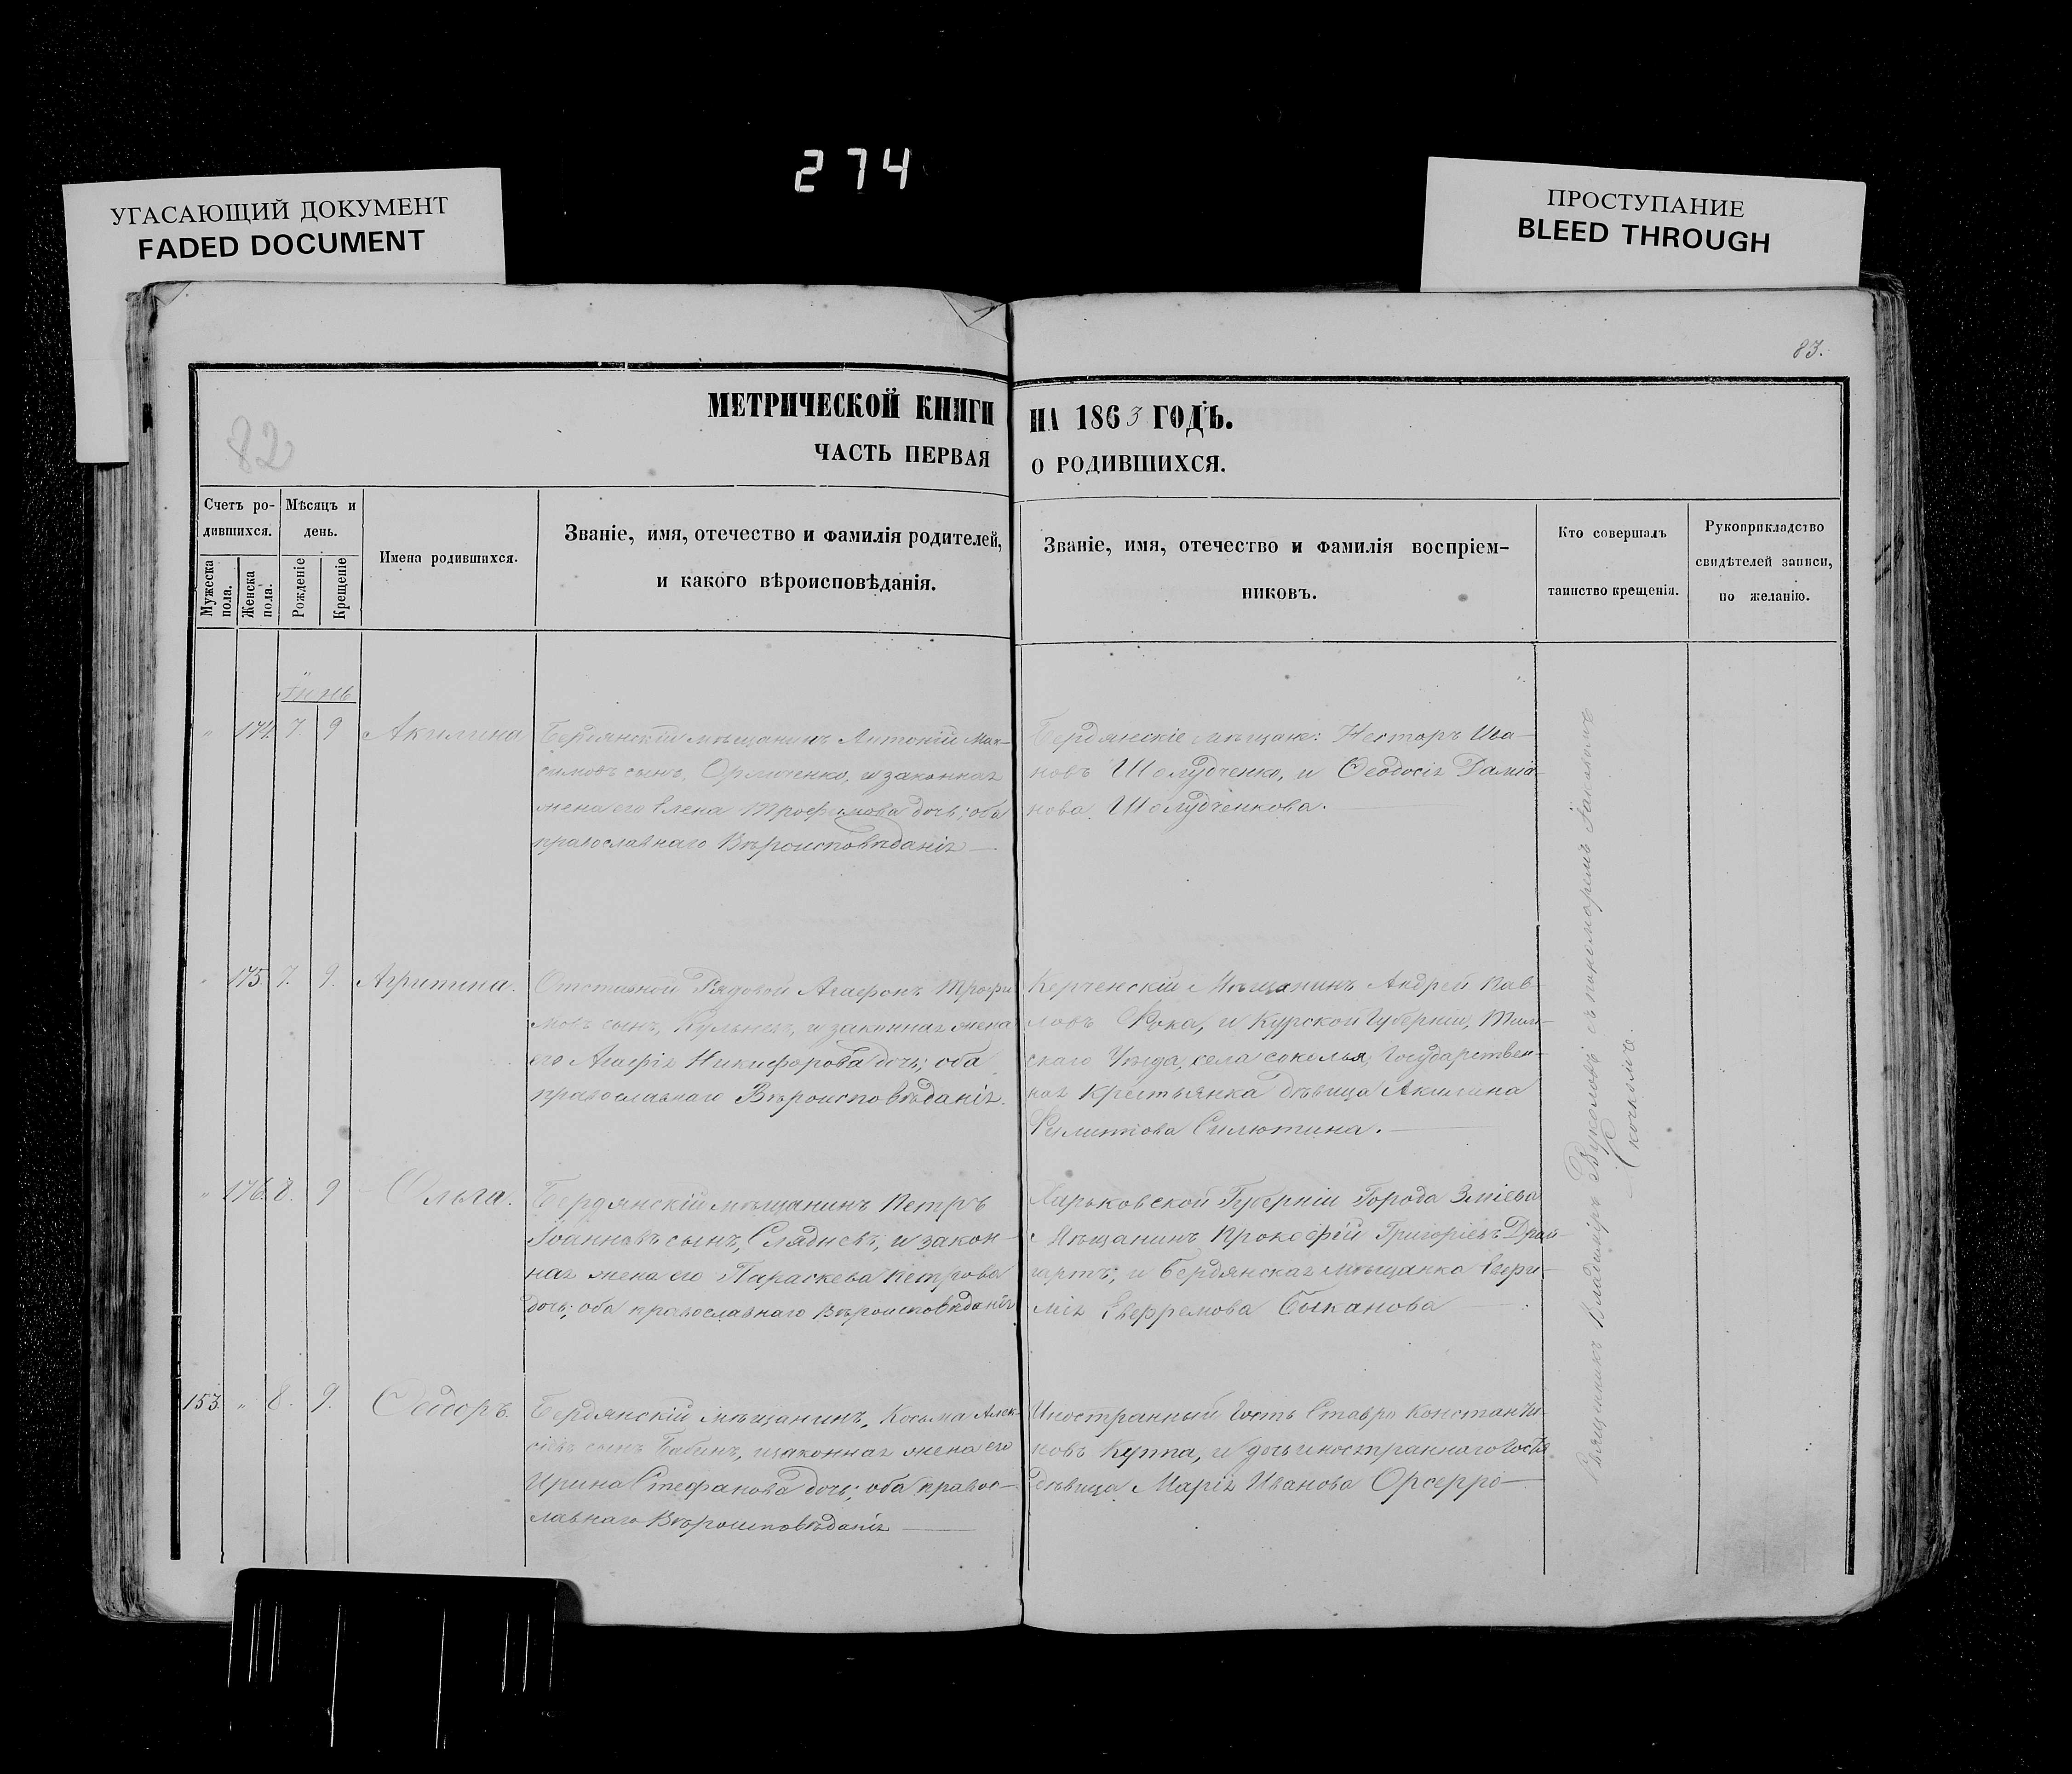 274
УГАСАЮЩИЙ ДОКУМЕНТ
FADED DOCUMENT
ПРОСТУПАНИЕ
BLEED THROUGH
83.
82
МЕТРИЧЕСКОЙ КНИГИ НА 1863 ГОДЪ.
ЧАСТЬ ПЕРВАЯ О РОДИВШИХСЯ.
Счетъ ро-
дившихся.
Мужеска
пола.
Женска
пола.
Мѣсяцъ и
день.
Рожденіе
Крещеніе
Имена родившихся.
Званіе, имя, отечество и фамилія родителей,
и какого вѣроисповѣданія.
Званіе, имя, отечество и фамилія воспріем-
никовъ.
Кто совершалъ
таинство крещенія.
Рукоприкладство
свидѣтелей записи,
по желанію.
Іюнь
" 174. 7. 9 Акилина
Бердянскій мѣщанинъ Антоній Мак-
симовъ сынъ, и законная
жена его Елена Трофимова дочь; оба
православнаго Вѣроисповѣданія
Бердянскіе мѣщане: Несторъ Ива-
новъ Шолудченко, и Ѳеодосія Даміа-
нова Шолудченкова.
" 175. 7. 9. Агрипина.
Отставной Рядовой Агафонъ Трофи-
мовъ сынъ, и законная жена
его Агафія Никифорова дочь; оба
православнаго Вѣроисповѣданія.
Керченскій Мѣщанинъ Андрей Пав-
ловъ и Курской Губерніи, Тим-
скаго Уѣзда, села соколья, Государствен-
ная Крестьянка дѣвица Акилина
Филипова Силютина.
" 176. 8. 9 Ольга.
Бердянскій мѣщанинъ Петръ
Іоанновъ сынъ, Слядневъ, и закон-
ная жена его Параскева Петрова
дочь; оба православнаго Вѣроисповѣданія
Харьковской Губерніи Города Зміева
Мѣщанинъ Прокофій Григоріевъ
и Бердянская мѣщанка
Быканова
153. " 8. 9. Ѳеодоръ.
Бердянскій мѣщанинъ, Косьма Алек-
сіевъ сынъ Бабинъ, и законная жена его
Ирина Стефанова дочь; оба правос-
лавнаго Вѣроисповѣданія
Иностранный Гость Ставро Константи-
новъ Куппа, и дочь иностраннаго Гостя
дѣвица Марія Иванова
Священникъ Владиміръ съ пономаремъ Іаковомъ